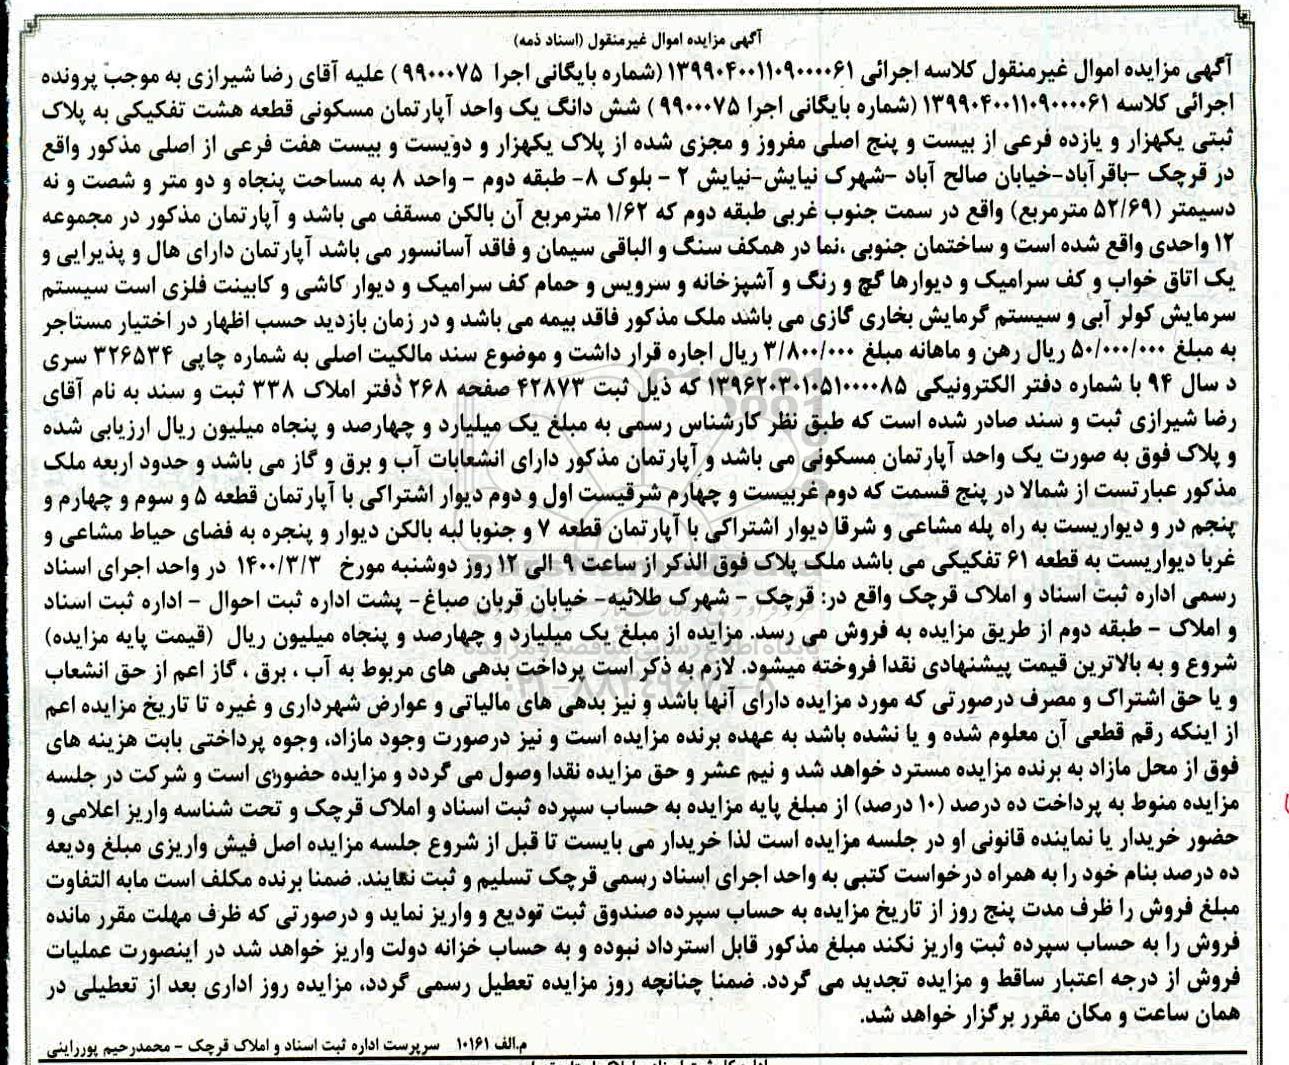 آگهی مزایده اموال غیرمنقول (اسناد ذمه)
آگهی مزایده اموال غیرمنقول کلاسه اجرائی ۱۳۹۹۰۴۰۰۱۱۰۹۰۰۰۰۶۱ (شماره بایگانی اجرا ۹۹۰۰۰۷۵ ) علیه آقای رضا شیرازی به موجب پرونده
اجرائی کلاسه ۱۳۹۹۰۴۰۰۱۱۰۹۰۰۰۰۶۱ (شماره بایگانی اجرا ۹۹۰۰۰۷۵ ) شش دانگ یک واحد آپارتمان مسکونی قطعه هشت تفکیکی به پلاک
ثبتی یکهزار و یازده فرعی از بیست و پنج اصلی مفروز و مجزی شده از پلاک یکهزار و دویست و بیست هفت فرعی از اصلی مذکور واقع
در قرچک -باقرآباد-خیابان صالح آباد -شهرک نیایش-نیایش ۲ - بلوک ۸- طبقه دوم - واحد ۸ به مساحت پنجاه و دو متر و شصت و نه
دسیمتر (۵۲/۶۹ مترمربع) واقع در سمت جنوب غربی طبقه دوم که ۱/۶۲ مترمربع آن بالکن مسقف می باشد و آپارتمان مذکور در مجموعه
۱۲ واحدی واقع شده است و ساختمان جنوبی ،نما در همکف سنگ و الباقی سیمان و فاقد آسانسور می باشد آپارتمان دارای هال و پذیرایی و
یک اتاق خواب و کف سرامیک و دیوارها گچ و رنگ و آشپزخانه و سرویس و حمام کف سرامیک و دیوار کاشی و کابینت فلزی است سیستم
سرمایش کولر آبی و سیستم گرمایش بخاری گازی می باشد ملک مذکور فاقد بیمه می باشد و در زمان بازدید حسب اظهار در اختیار مستاجر
به مبلغ ۵۰/۰۰۰/۰۰۰ ریال رهن و ماهانه مبلغ ۳/۸۰۰/۰۰۰ ریال اجاره قرار داشت و موضوع سند مالکیت اصلی به شماره چاپی ۳۲۶۵۳۴ سری
د سال ۹۴ با شماره دفتر الکترونیکی ۱۳۹۶۲۰۳۰۱۰۵۱۰۰۰۰۸۵ که ذیل ثبت ۴۲۸۷۳ صفحه ۲۶۸ دفتر املاک ۳۳۸ ثبت و سند به نام آقای
رضا شیرازی ثبت و سند صادر شده است که طبق نظر کارشناس رسمی به مبلغ یک میلیارد و چهارصد و پنجاه میلیون ریال ارزیابی شده
و پلاک فوق به صورت یک واحد آپارتمان مسکونی می باشد و آپارتمان مذکور دارای انشعابات آب و برق و گاز می باشد و حدود اربعه ملک
مذکور عبارتست از شمالا در پنج قسمت که دوم غربیست و چهارم شرقیست اول و دوم دیوار اشتراکی با آپارتمان قطعه ۵ و سوم و چهارم و
پنجم در و دیواریست به راه پله مشاعی و شرقا دیوار اشتراکی با آپارتمان قطعه ۷ و جنوبا لبه بالکن دیوار و پنجره به فضای حیاط مشاعی و
غربا دیواریست به قطعه ۶۱ تفکیکی می باشد ملک پلاک فوق الذکر از ساعت ۹ الی ۱۲ روز دوشنبه مورخ ۱۴۰۰/۳/۳ در واحد اجرای اسناد
رسمی اداره ثبت اسناد و املاک قرچک واقع در: قرچک - شهرک طلائیه- خیابان قربان صباغ- پشت اداره ثبت احوال - اداره ثبت اسناد
و املاک - طبقه دوم از طریق مزایده به فروش می رسد. مزایده از مبلغ یک میلیارد و چهارصد و پنجاه میلیون ریال (قیمت پایه مزایده)
شروع و به بالاترین قیمت پیشنهادی نقدا فروخته میشود. لازم به ذکر است پرداخت بدهی های مربوط به آب ، برق ، گاز اعم از حق انشعاب
و یا حق اشتراک و مصرف درصورتی که مورد مزایده دارای آنها باشد و نیز بدهی های مالیاتی و عوارض شهرداری و غیره تا تاریخ مزایده اعم
از اینکه رقم قطعی آن معلوم شده و یا نشده باشد به عهده برنده مزایده است و نیز درصورت وجود مازاد، وجوه پرداختی بابت هزینه های
فوق از محل مازاد به برنده مزایده مسترد خواهد شد و نیم عشر و حق مزایده نقدا وصول می گردد و مزایده حضوری است و شرکت در جلسه
مزایده منوط به پرداخت ده درصد (۱۰ درصد) از مبلغ پایه مزایده به حساب سپرده ثبت اسناد و املاک قرچک و تحت شناسه واریز اعلامی و
حضور خریدار یا نماینده قانونی او در جلسه مزایده است لذا خریدار می بایست تا قبل از شروع جلسه مزایده اصل فیش واریزی مبلغ ودیعه
ده درصد بنام خود را به همراه درخواست کتبی به واحد اجرای اسناد رسمی قرچک تسلیم و ثبت نمایند. ضمنا برنده مکلف است مابه التفاوت
مبلغ فروش را ظرف مدت پنج روز از تاریخ مزایده به حساب سپرده صندوق ثبت تودیع و واریز نماید و درصورتی که ظرف مهلت مقرر مانده
فروش را به حساب سپرده ثبت واریز نکند مبلغ مذکور قابل استرداد نبوده و به حساب خزانه دولت واریز خواهد شد در اینصورت عملیات
فروش از درجه اعتبار ساقط و مزایده تجدید می گردد. ضمنا چنانچه روز مزایده تعطیل رسمی گردد، مزایده روز اداری بعد از تعطیلی در
همان ساعت و مکان مقرر برگزار خواهد شد.
م.الف ۱۰۱۶۱ سرپرست اداره ثبت اسناد و املاک قرچک - محمدرحیم پوررایینی